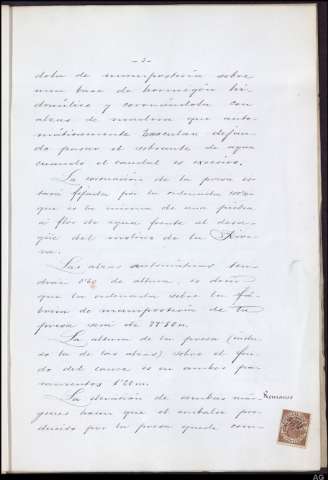 - 2 -
dola de mampostería sobre
una base de hormigón hi-
dráulico y coronándola con
alzas de madera que auto-
máticamente basculan dejan-
do pasar el sobrante de agua
cuando el caudal es excesivo.
La coronación de la presa es-
tará fijada por la ordenada
que es la misma de una piedra
a flor de agua frente al desa-
güe del molino de la Rive-
ra.
Las alzas automáticas ten-
drán de altura, es decir
que la ordenada sobre la fá-
brica de mampostería de la
presa será de
La altura de la presa (inclu-
so la de las alzas) sobre el fon-
do del cauce es en ambos pa-
ramentos
La elevación de ambas már- Remanso
genes hacen que el embalse pro-
ducido por la presa quede com-
AG